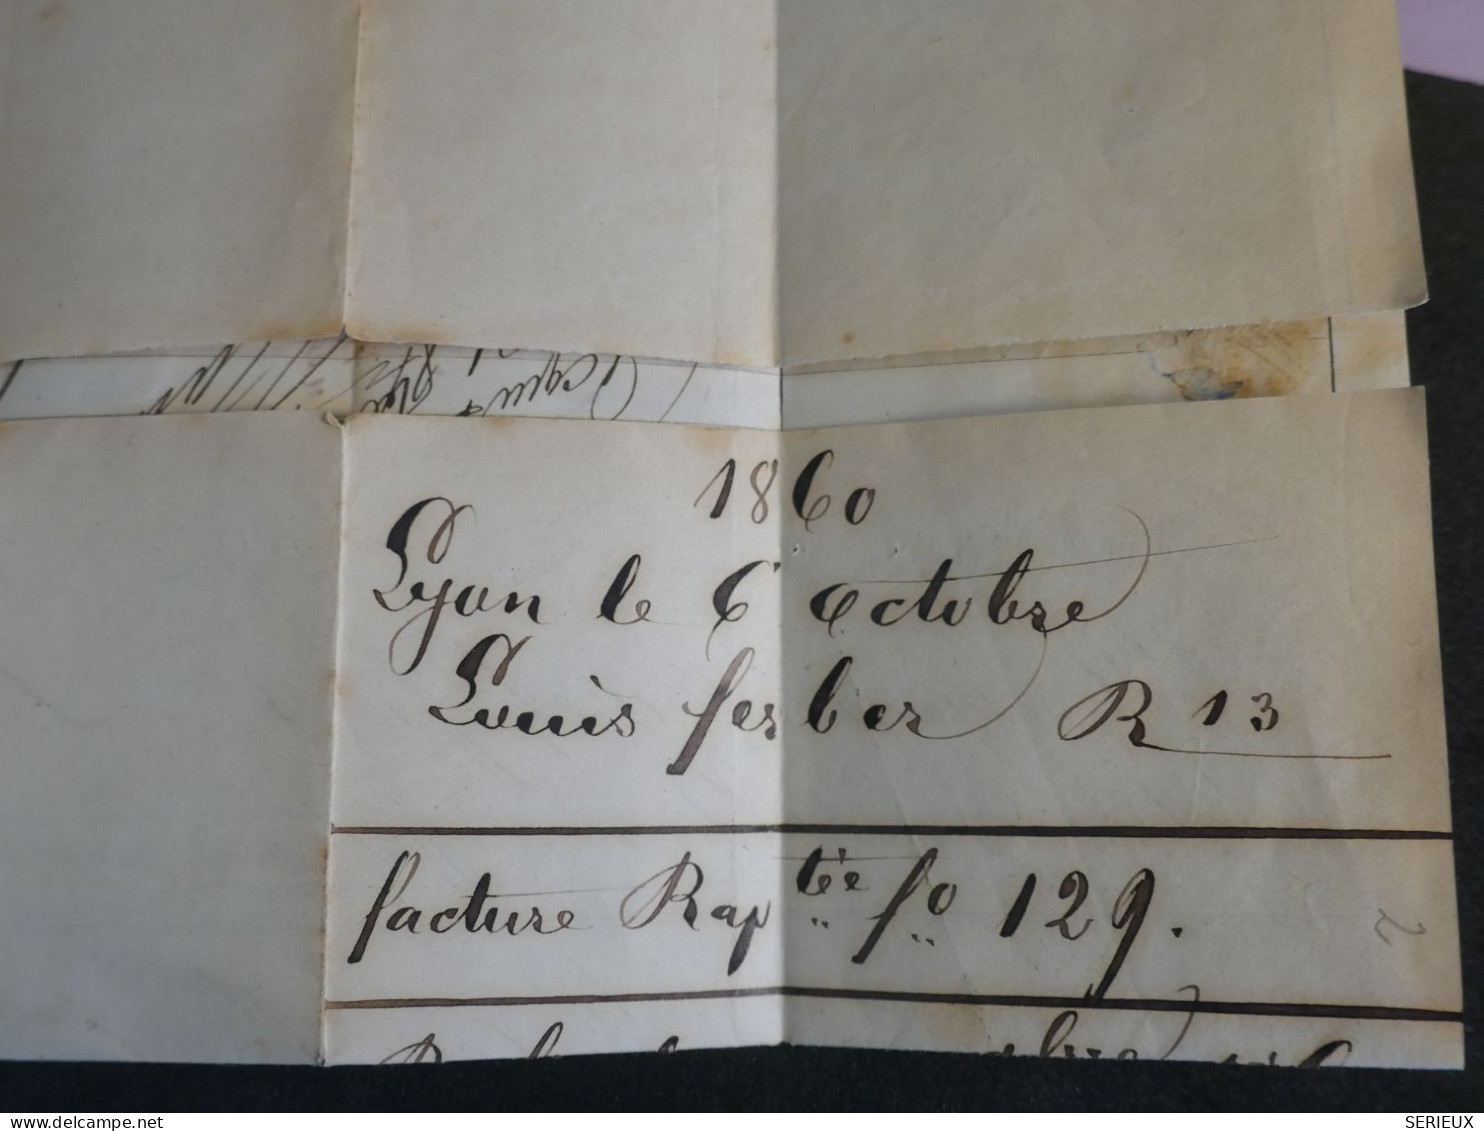 1860
Lyon le 6 Octobre
Louis ferber R 13
facture Rap tée fo 129.
2
SERIEUX